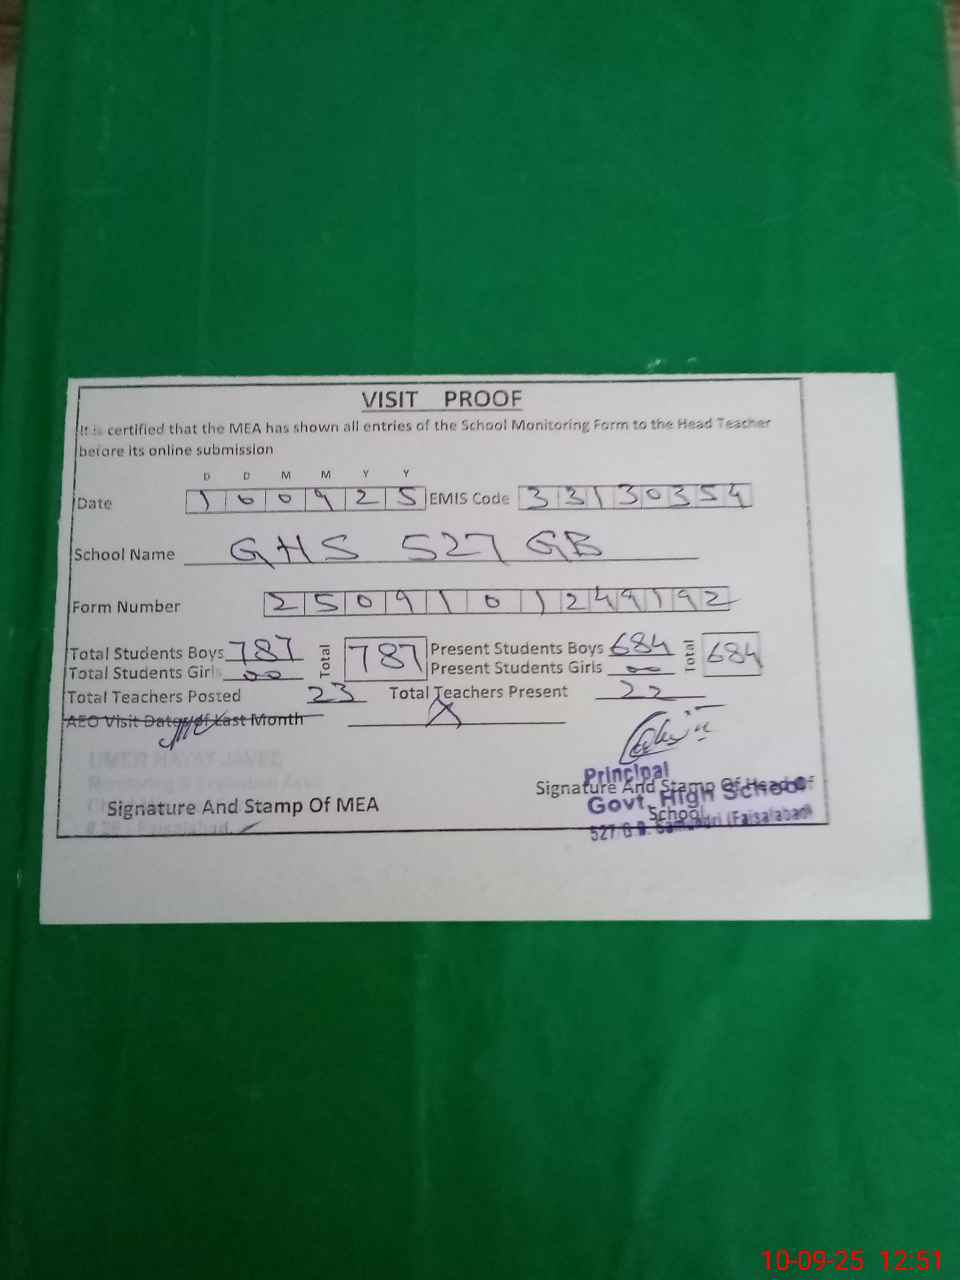 VISIT PROOF
It is certified that the MEA has shown all entries of the School Monitoring Form to the Head Teacher
before its online submission
D D M M Y Y
Date 1 0 0 9 2 5 EMIS Code 3 3 1 3 0 3 5 4
School Name GHS 527 GB
Form Number 2 5 0 9 1 0 1 2 4 9 1 9 2
Total Students Boys 787 Total 787 Present Students Boys 684 Total 684
Total Students Girls 00 Present Students Girls 00
Total Teachers Posted 23 Total Teachers Present 22
AEO Visit Date of Last Month X
UMER HAYAT JAVED
Principal
Signature And Stamp Of Head Of
School
Govt. High School
527 G.B. Samundri (Faisalabad)
Signature And Stamp Of MEA
Faisalabad
10-09-25 12:51